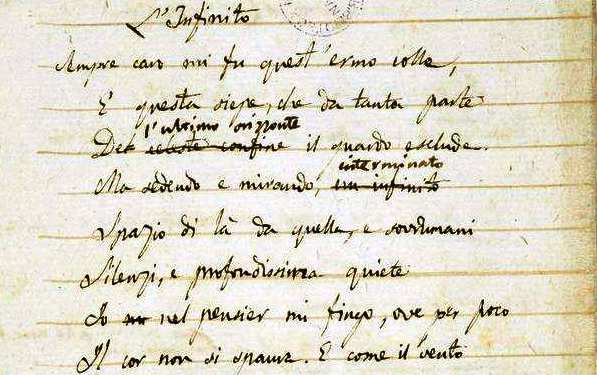 L'Infinito
Sempre caro mi fu quest'ermo colle,
E questa siepe, che da tanta parte
l'ultimo orizzonte
Del celeste confine il guardo esclude.
interminato
Ma sedendo e mirando, un infinito
Spazio di là da quella, e sovrumani
Silenzi, e profondissima quiete
Io nel pensier mi fingo, ove per poco
Il cor non si spaura. E come il vento